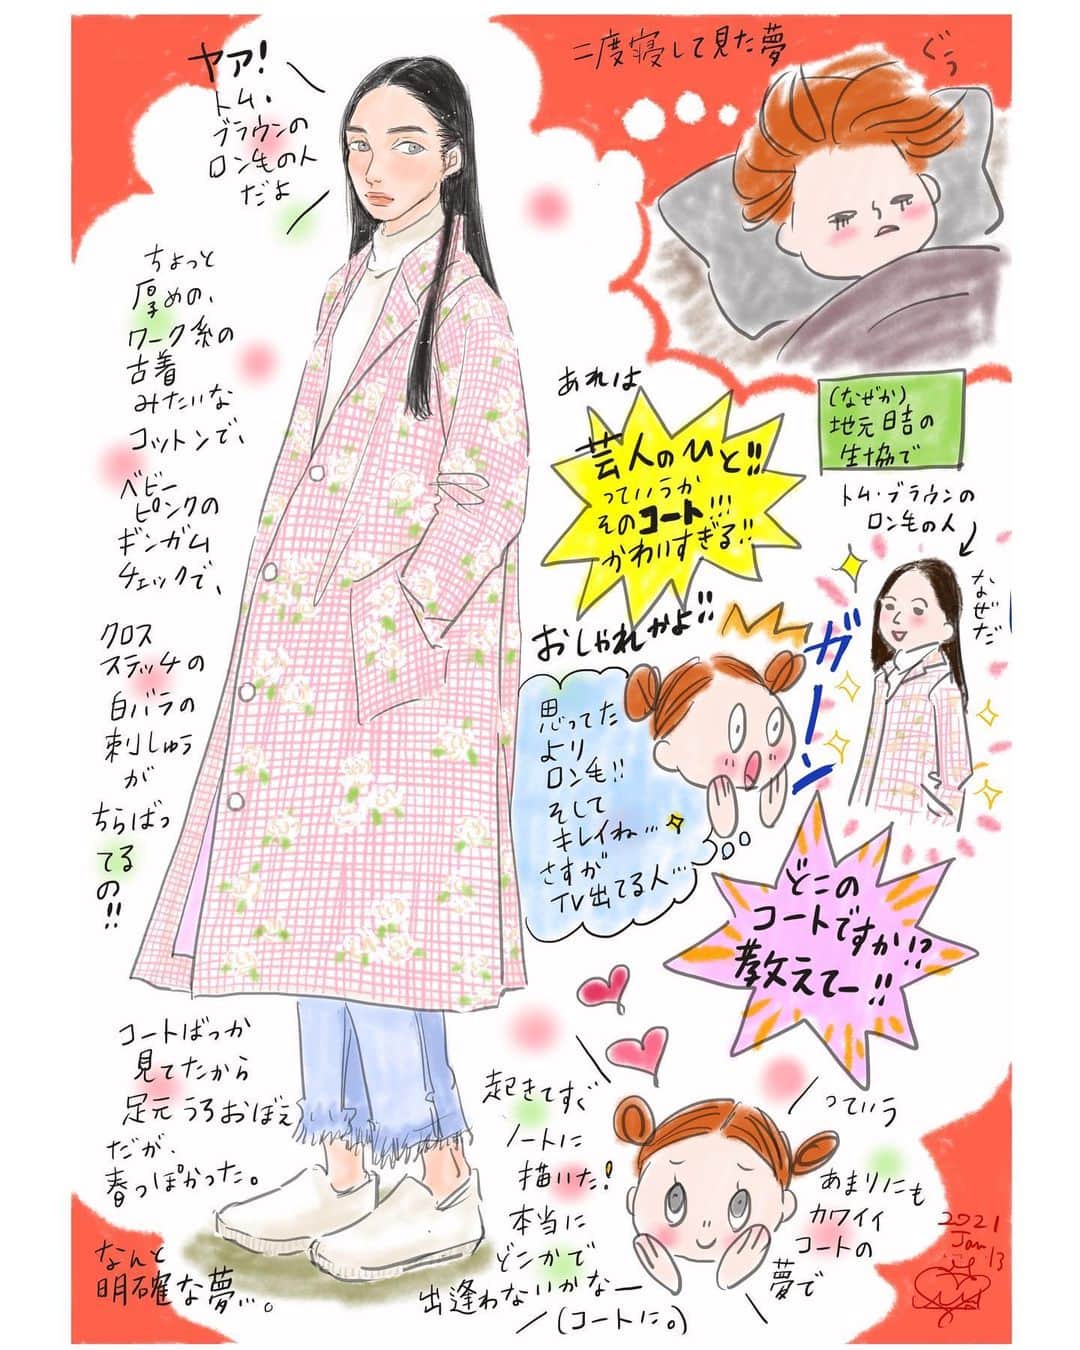 二度寝して見た夢
ぐぅ
ヤァ!
トム・
ブラウンの
ロン毛の人
だよ
ちょっと
厚めの、
ワーク系の
古着
みたいな
コットンで、
ベビー
ピンクの
ギンガム
チェックで、
クロス
ステッチの
白バラの
刺しゅう
が
ちらばっ
てる
の!!
コートばっか
見てたから
足元うろおぼえ
だが、
春っぽかった。
なんと
明確な夢…。
(なぜか)
地元日吉の
生協で
トム・ブラウンの
ロン毛の人
なぜだ
あれは
芸人のひと!!
っていうか
そのコート!!!
かわいすぎる!!
おしゃれかよ!!
ガーン
思ってた
より
ロン毛!!
そして
キレイね…
さすが
TV出てる人…
どこの
コートですか!?
教えてー!!
っていう
あまりにも
カワイイ
コートの
夢で
起きてすぐ
ノートに
描いた!
本当に
どこかで
出逢わないかなー
(コートに。)
2021
Jan
13